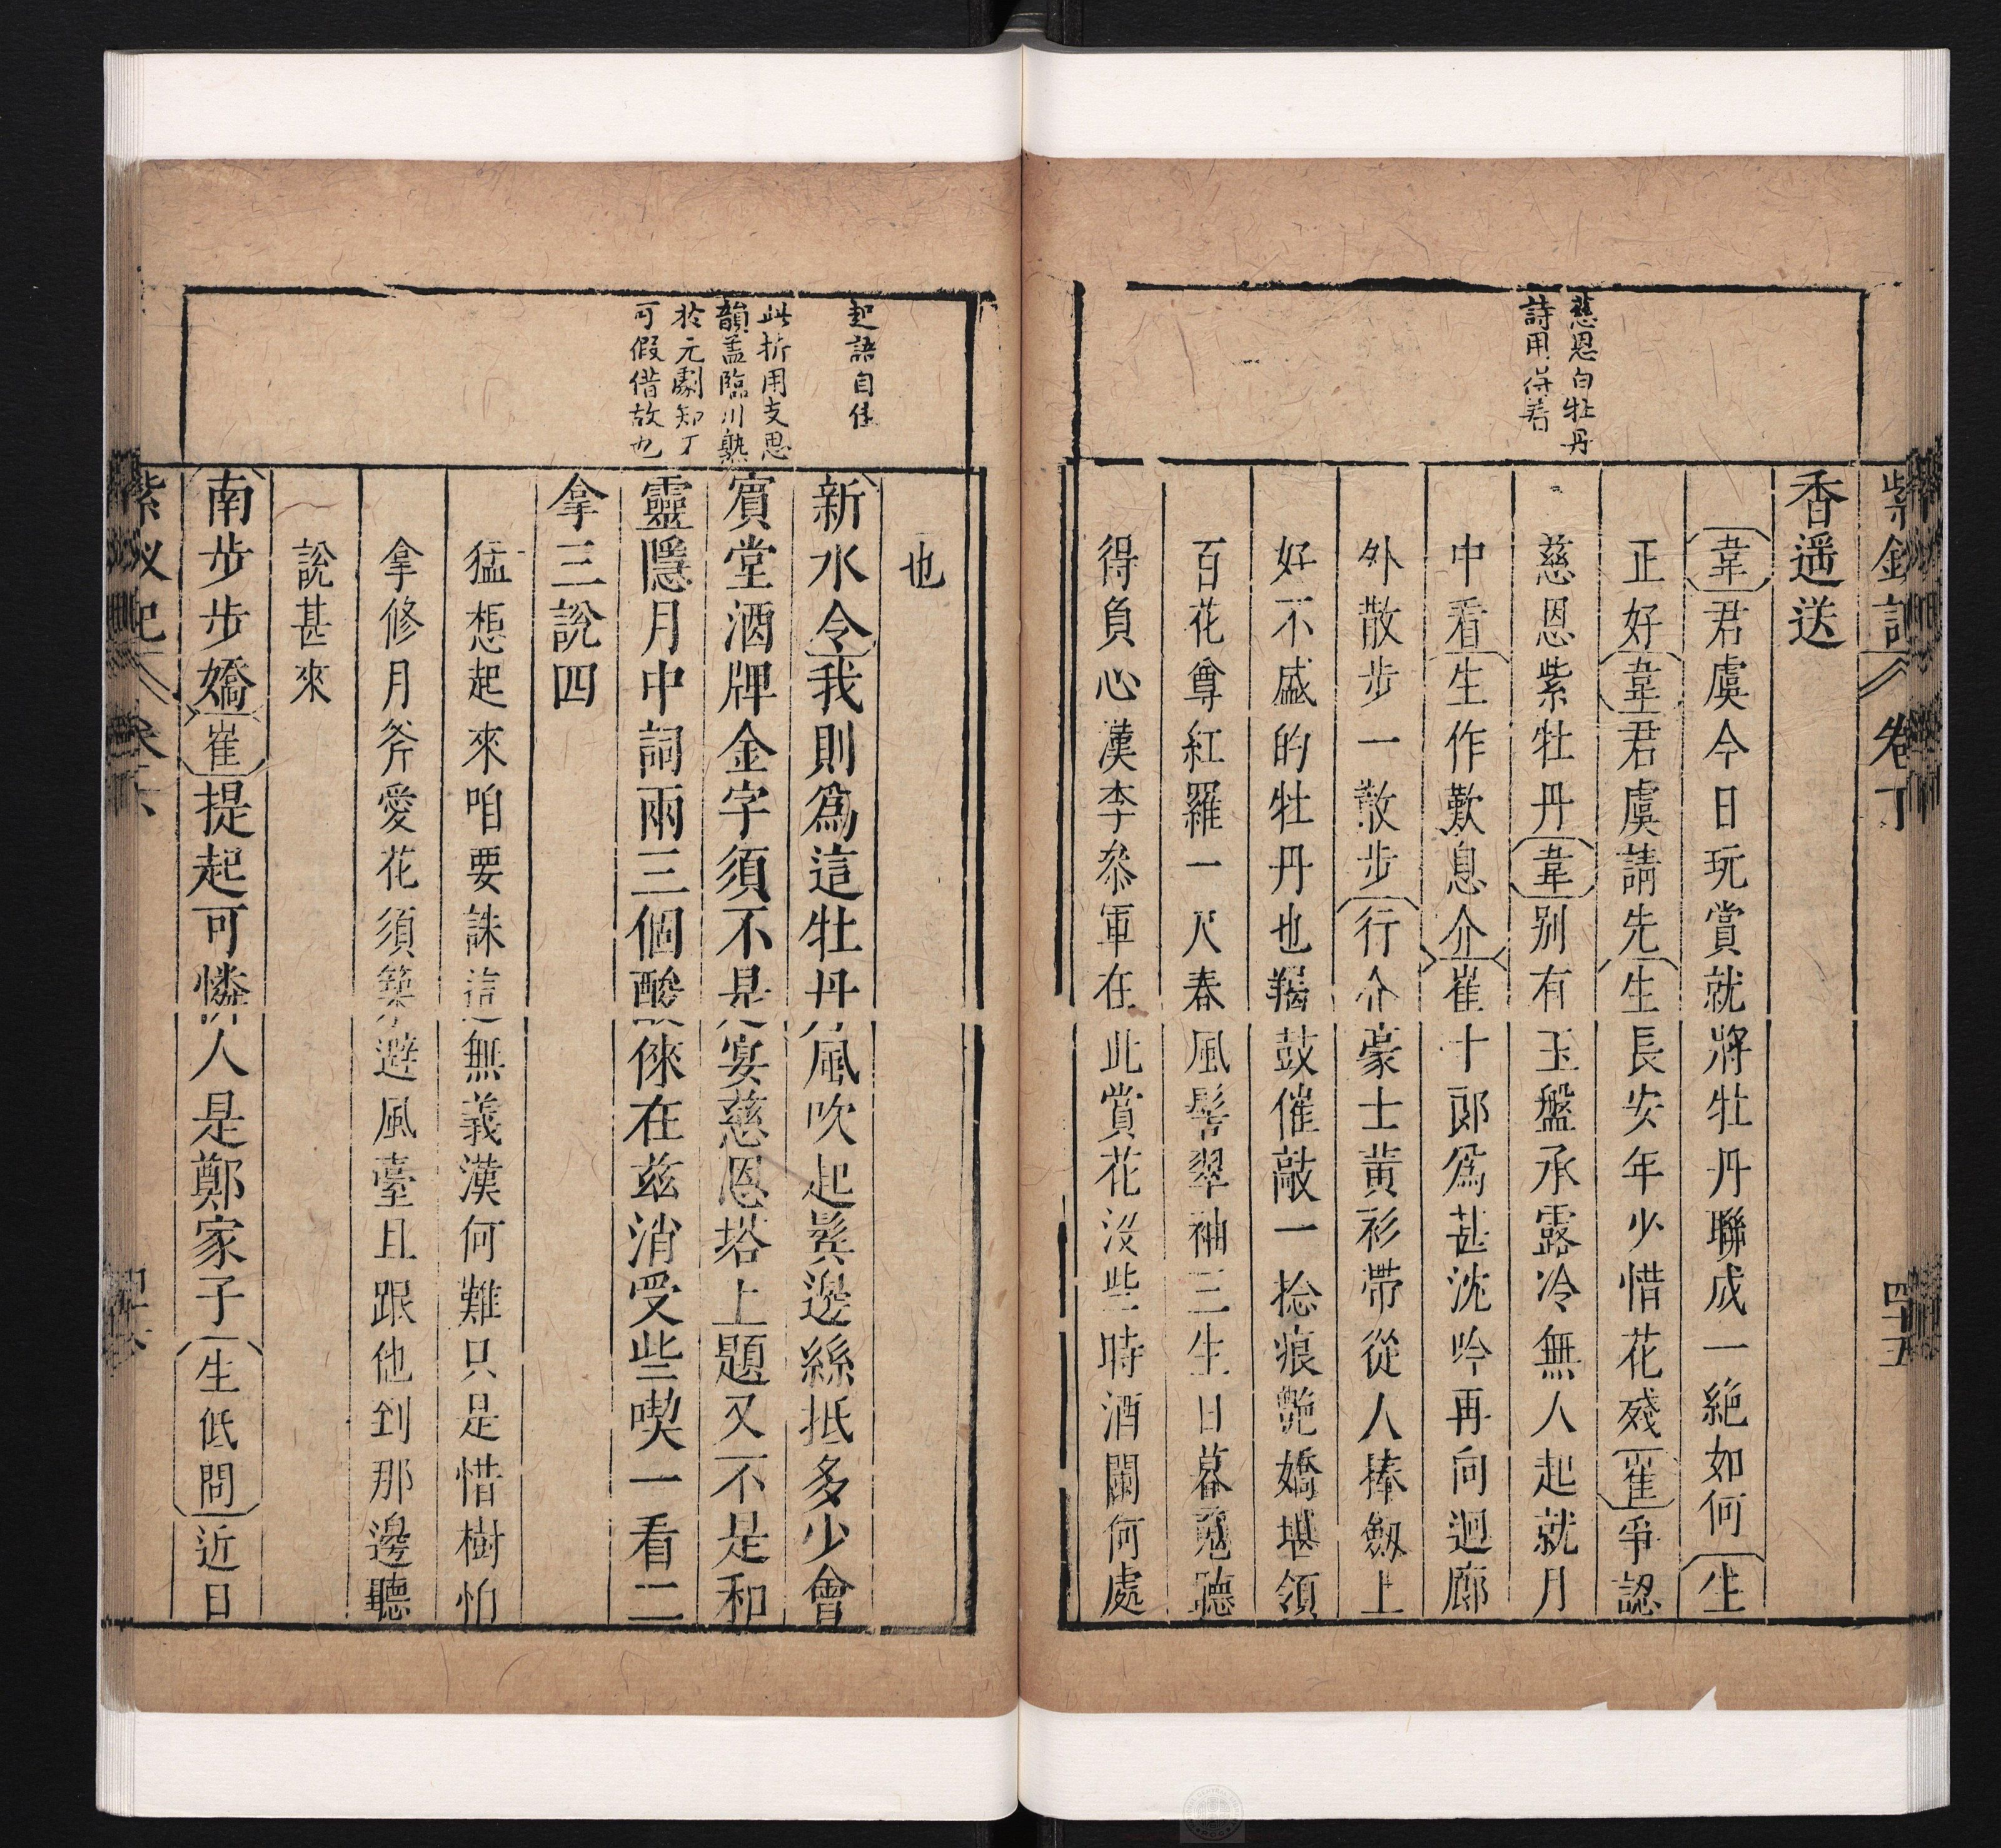 紫釵記 卷下 四十五
慈恩白牡丹
詩用得着
香遥送
韋君虞今日玩賞就將牡丹聯成一絶如何生
正好韋君虞請先生長安年少惜花殘崔爭認
慈恩紫牡丹韋别有玉盤承露冷無人起就月
中看生作歎息介崔十郎爲甚沈吟再向迴廊
外散步一散步行介豪士黄衫帶從人捧劔上
好不盛的牡丹也羯鼓催敲一捻痕艶嬌堪領
百花尊紅羅一尺春風髻翠袖三生日暮䰟聽
得負心漢李叅軍在此賞花没些時酒闌何處
起語自佳
此折用支思
韻盖臨川熟
於元劇知丁
可假借故也
也
新水令我則爲這牡丹風吹起鬂邊絲抵多少會
賓堂酒牌金字須不是宴慈恩塔上題又不是和
靈隱月中詞兩三個酸倈在兹消受些喫一看二
拿三說四
猛想起來咱要誅這無義漢何難只是惜樹怕
拿修月斧愛花須築避風臺且跟他到那邊聽
說甚來
南步步嬌崔提起可憐人是鄭家子生低問近日
紫釵記